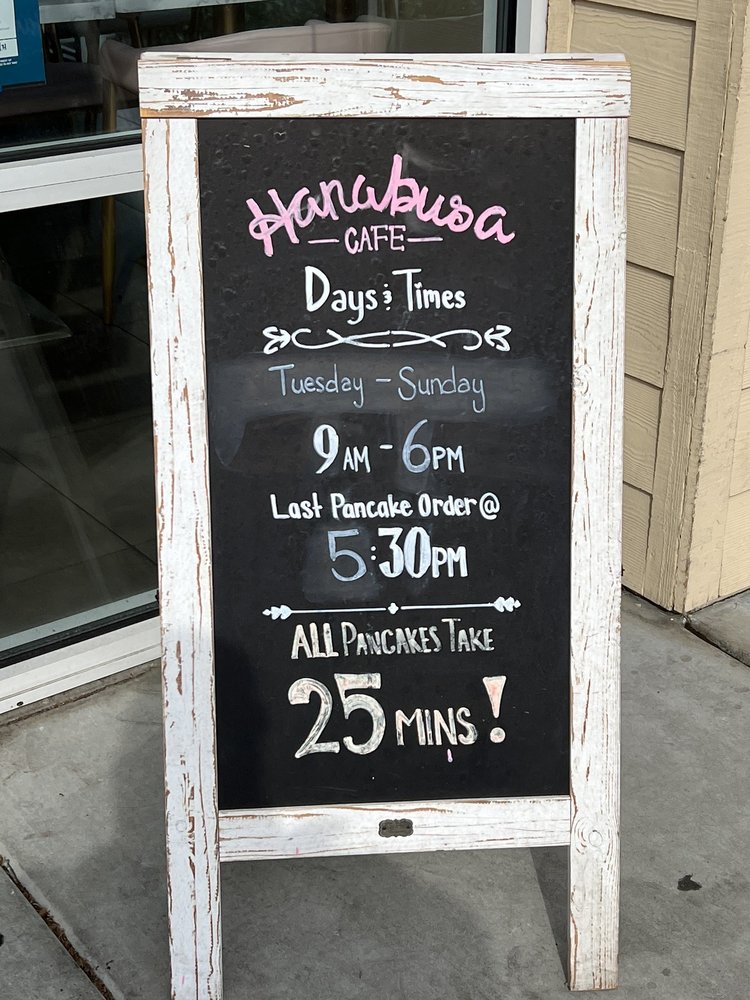 Hanabusa
CAFE
Days & Times
Tuesday - Sunday
9AM - 6PM
Last Pancake Order @
5:30PM
ALL PANCAKES TAKE
25 MINS!